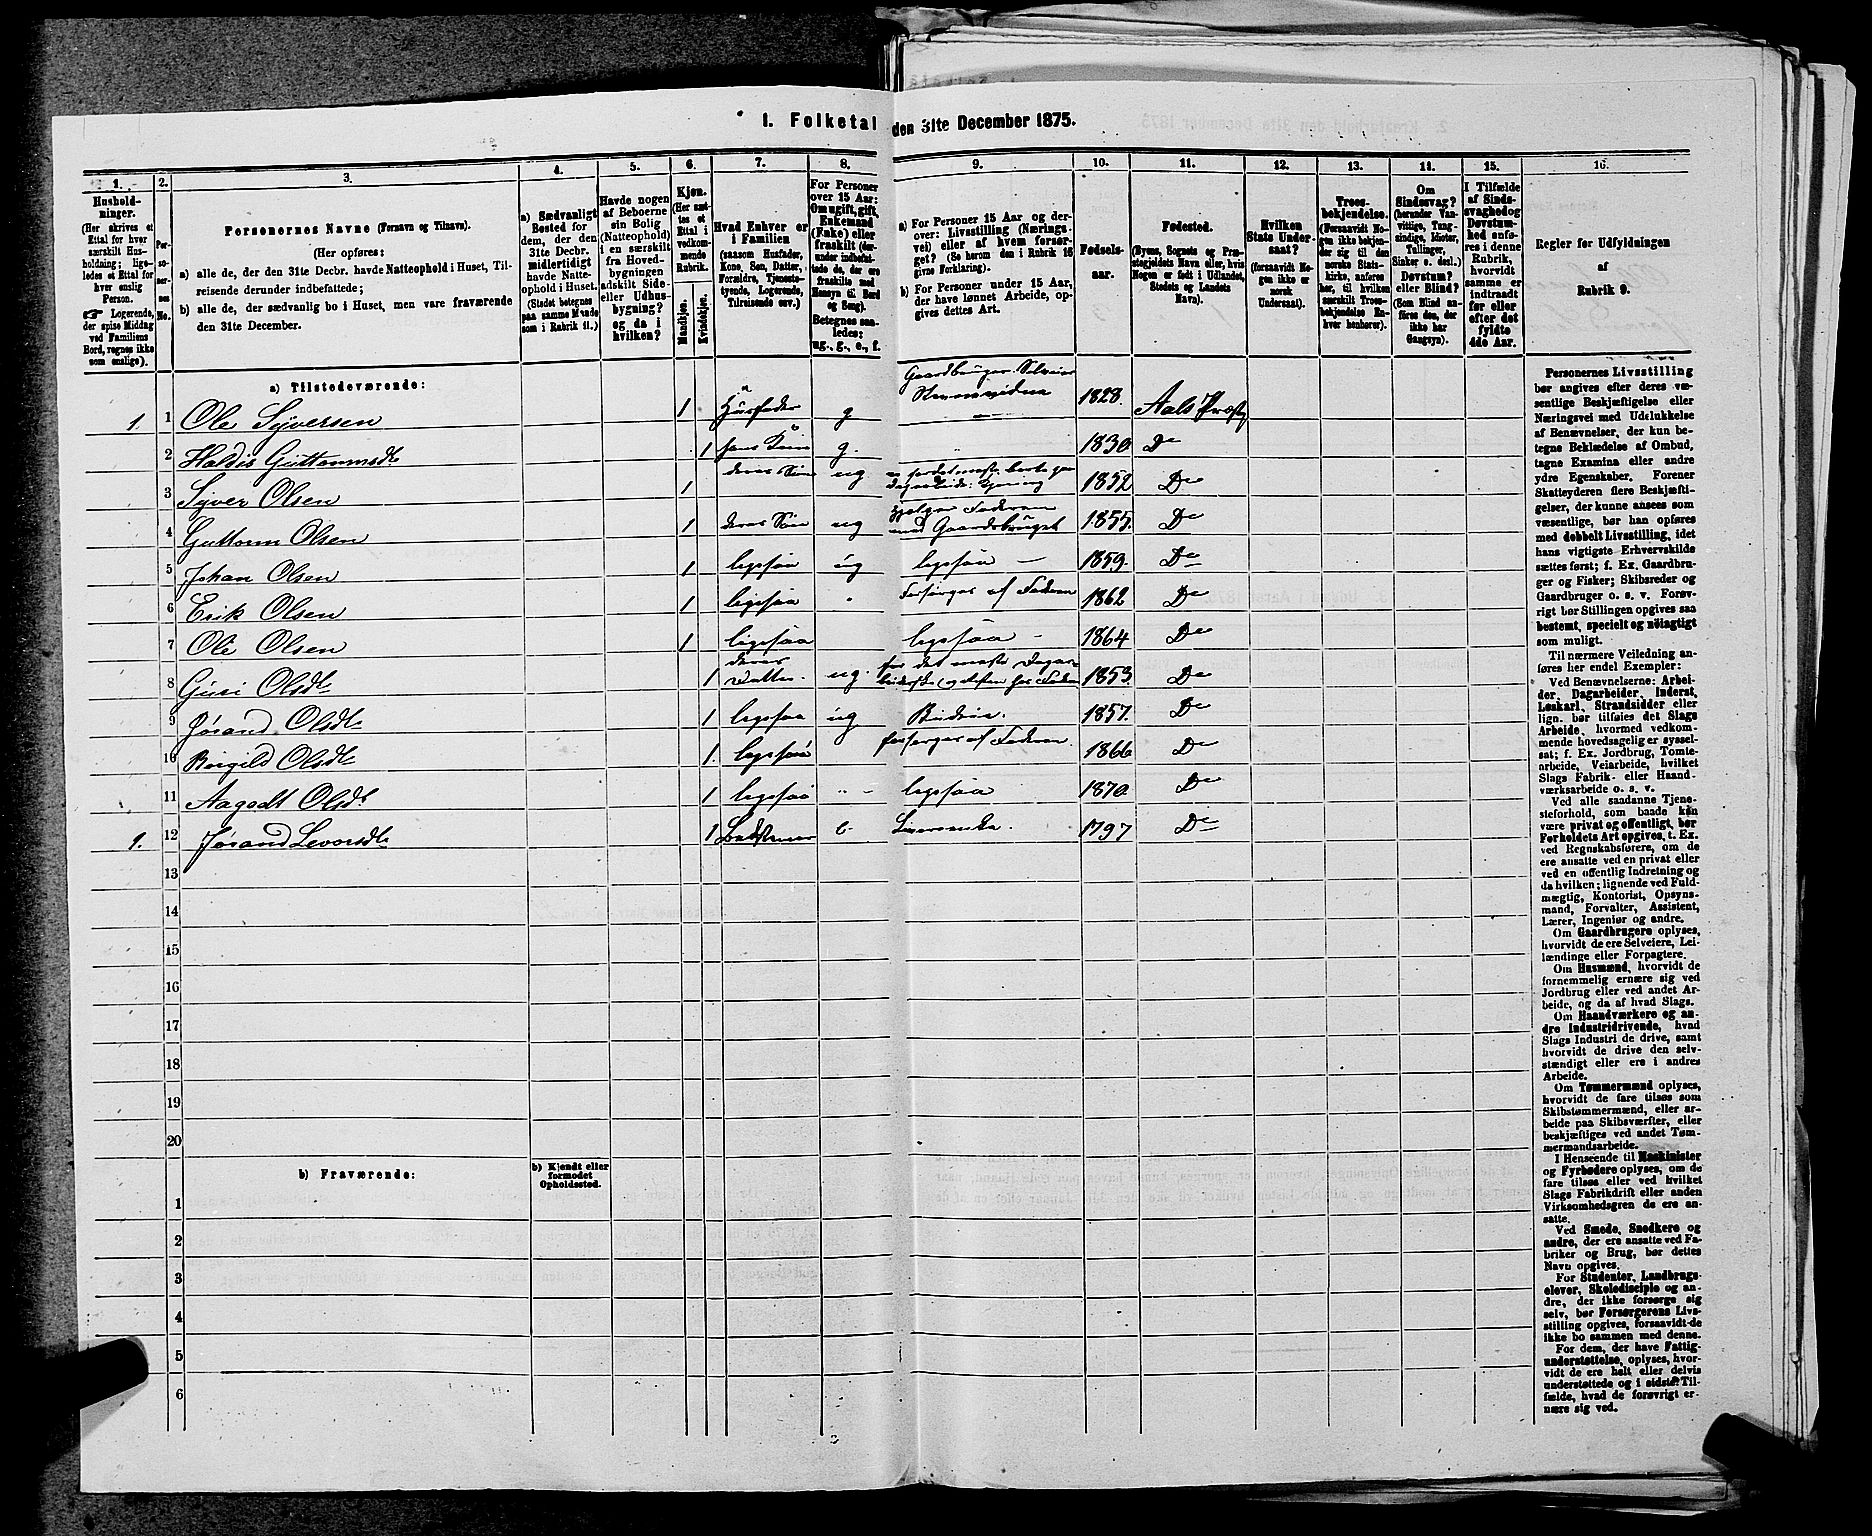 1. Folketal den 31te December 1875.
1. 2. 3. 4. 5. 6. 7. 8. 9. 10. 11. 12. 13. 14. 15. 16.
Hushold-
ninger.
(Her skrives et
Ettal for hver
særskilt Hus-
holdning; lige-
ledes et Ettal for
hver enslig
Person.
☞ Logerende,
der spise Middag
ved Familiens
Bord, regnes ikke
som enslige).
Per-
so-
ner-
nes
No.
Personernes Navne (Fornavn og Tilnavn).
(Her opføres:
a) alle de, der den 31te Decbr. havde Natteophold i Huset, Til-
reisende derunder indbefattede;
b) alle de, der sædvanlig bo i Huset, men vare fraværende
den 31te December.
a) Sædvanligt
Bosted for
dem, der den
31te Decbr.
midlertidigt
havde Natte-
ophold i Huset.
(Stedet betegnes
paa samme Maade
som i Rubrik 11.)
Havde nogen
af Beboerne
sin Bolig
(Natteophold)
i en særskilt
fra Hoved-
bygningen
adskilt Side-
eller Udhus-
bygning?
og da i
hvilken?
Kjøn.
(Her sæt-
tes et
Ettal i
vedkom-
mende
Rubrik.
Mandkjøn.
Kvindekjøn.
Hvad Enhver er
i Familien
(saasom Husfader,
Kone, Søn, Datter,
Forældre, Tjeneste-
tyende, Logerende,
Tilreisende osv.)
For Personer
over 15 Aar:
Om ugift, gift,
Enkemand
(Enke) eller
fraskilt (der-
under indbefat-
tede de, der ere
fraskilte med
Hensyn til Bord
og Seng).
Betegnes saa-
ledes:
ug., g., e., f.
a) For Personer 15 Aar og der-
over: Livsstilling (Nærings-
vei) eller af hvem forsør-
get? (Se herom den i Rubrik 16
givne Forklaring).
b) For Personer under 15 Aar,
der have lønnet Arbeide, op-
gives dettes Art.
Fødsels-
aar.
Fødested.
(Byens, Sognets og Præ-
stegjeldets Navn eller, hvis
Nogen er født i Udlandet,
Stedets og Landets
Navn).
Hvilken
Stats Under-
saat?
(forsaavidt No-
gen ikke er
norsk
Undersaat).
Troes-
bekjendelse.
(Forsaavidt No-
gen ikke bekjen-
der sig til den
norske Stats-
kirke, anføres
her, til hvilken
særskilt Troes-
bekjendelse En-
hver henhører).
Om
Sindssvag?
(herunder Van-
vittige, Tung-
sindige, Idioter,
Tullinger,
Sinker o. desl.)
Døvstum?
eller Blind?
(Som Blind an-
føres den, der
ikke har
Gangsyn).
I Tilfælde
af Sinds-
svaghed og
Døvstum-
hed anfø-
res i denne
Rubrik,
hvorvidt
samme er
indtraadt
før eller
efter det
fyldte
4de Aar.
Regler for Udfyldningen
af
Rubrik 9.
a) Tilstedeværende:
Gaardbruger Selveier
1. 1 Ole Syversen 1 Husfader g 1828. Aals Præstg
2 Haldis Guttormsdt 1 hans Kone g. 1830 Do
3 Syver Olsen 1 deres Søn ug 1852 Do
4 Guttorm Olsen 1 deres Søn ug hjelper Faderen med Gaardsbruget 1855. Do
5 Johan Olsen 1 ligesaa ug ligesaa – 1859. Do
6 Erik Olsen 1 ligesaa " Forsørges af Faderen 1862 Do
7 Ole Olsen 1 ligesaa ligesaa – 1864 Do
8 Guri Olsdt 1 deres Datter. ug. 1853. Do
9 Jørand Olsdt 1 ligesaa ug Budeie. 1857. Do
10 Bergild Olsdt 1. ligesaa forsørges af Faderen. 1866 Do
11 Aagodt Olsdt 1 ligesaa " – ligesaa 1870. Do
1. 12 Jørand Levorsdt 1 e. 1797 Do
13
14
15
16
17
18
19
20
b) Fraværende:
b) Kjendt eller
formodet
Opholdssted.
1
2
3
4
5
6
Personernes Livsstilling
bør angives efter deres væ-
sentlige Beskjæftigelse eller
Næringsvei med Udelukkelse
af Benævnelser, der kun be-
tegne Beklædelse af Ombud,
tagne Examina eller andre
ydre Egenskaber. Forener
Skatteyderen flere Beskjæfti-
gelser, der kunne ansees som
væsentlige, bør han opføres
med dobbelt Livsstilling, idet
hans vigtigste Erhvervskilde
sættes først; f. Ex. Gaardbru-
ger og Fisker; Skibsreder og
Gaardbruger o. s. v. Forøv-
rigt bør Stillingen opgives saa
bestemt, specielt og nøiagtigt
som muligt.
Til nærmere Veiledning an-
føres her endel Exempler:
Ved Benævnelserne: Arbei-
der, Dagarbeider, Inderst,
Løskarl, Strandsidder eller
lign. bør tilføies det Slags
Arbeide, hvormed vedkom-
mende hovedsagelig er syssel-
sat; f. Ex. Jordbrug, Tomte-
arbeide, Veiarbeide, hvilket
Slags Fabrik- eller Haand-
værksarbeide o. s. v.
Ved alle saadanne Tjene-
steforhold, som baade kan
være privat og offentligt, bør
Forholdets Art opgives, t. Ex.
ved Regnskabsførere, om de
ere ansatte ved en privat eller
ved en offentlig Indretning og
da hvilken; lignende ved Fuld-
mægtig, Kontorist, Opsyns-
mand, Forvalter, Assistent,
Lærer, Ingeniør og andre.
Om Gaardbrugere oplyses,
hvorvidt de ere Selveiere, Lei-
lændinge eller Forpagtere.
Om Husmænd, hvorvidt de
fornemmelig ernære sig ved
Jordbrug eller ved andet Ar-
beide, og da af hvad Slags.
Om Haandværkere og an-
dre Industridrivende, hvad
Slags Industri de drive, samt
hvorvidt de drive den selv-
stændigt eller ere i andres
Arbeide.
Om Tømmermænd oplyses,
hvorvidt de fare tilsøs som
Skibstømmermænd, eller ar-
beide paa Skibsværfter, eller
beskjæftiges ved andet Tøm-
mermandsarbeide.
I Henseende til Maskinister
og Fyrbødere oplyses, om de
fare tilsøs eller ved hvilket
Slags Fabrikdrift eller anden
Virksomhedsgren de ere an-
satte.
Ved Smede, Snedkere og
andre, der ere ansatte ved Fa-
briker og Brug, bør dettes
Navn opgives.
For Studenter, Landbrugs-
elever, Skoledisciple og an-
dre, der ikke forsørge sig
selv, bør Forsørgerens Livs-
stilling opgives, forsaavidt de
ikke bo sammen med denne.
For dem, der have Fattig-
understøttelse, oplyses, hvor-
vidt de ere helt eller delvis
understøttede og i sidste Til-
fælde, hvad de forøvrigt er-
nære sig ved.